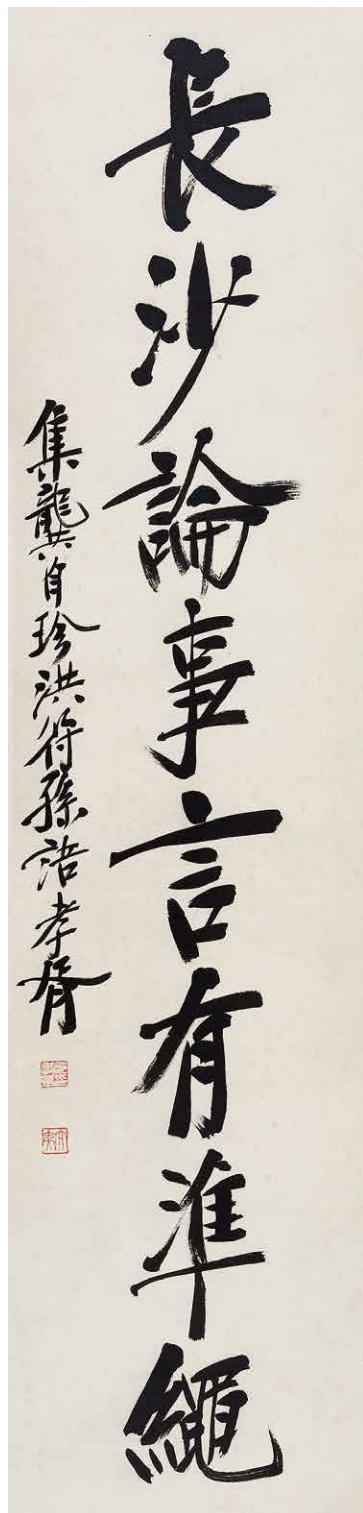 長沙論事言有準繩
集龔自珍洪符孫語孝胥